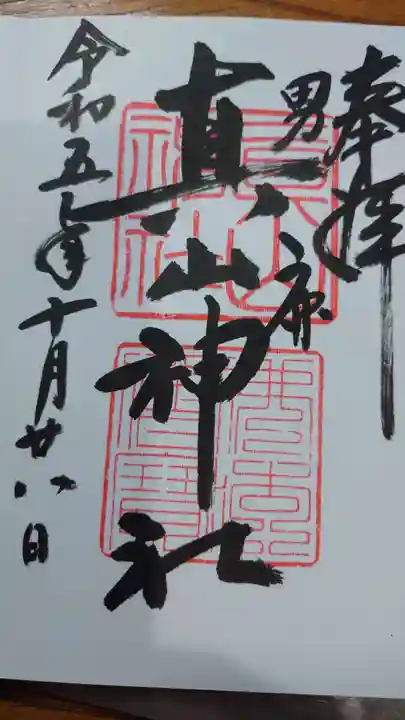 奉拝
男鹿
真山神社
令和五年十月廿八日